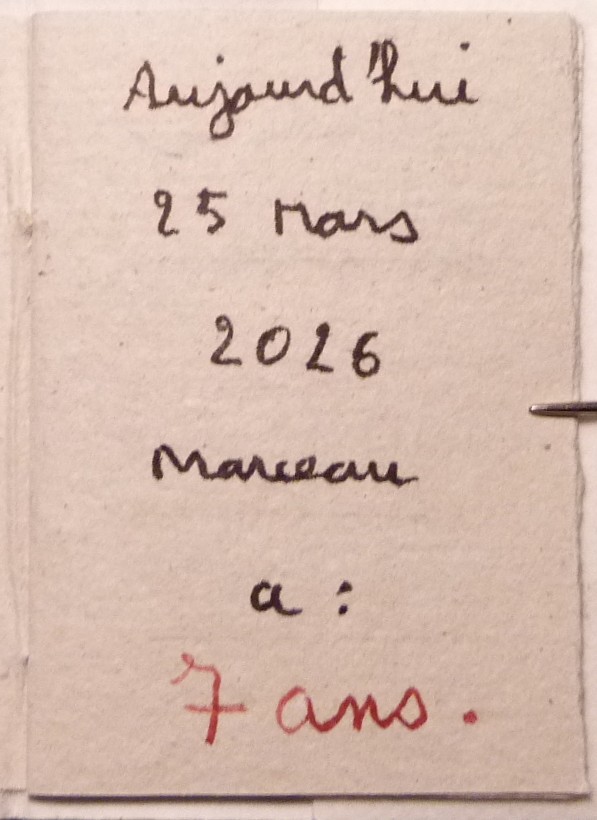 Aujourd'hui
25 Mars
2026
Marceau
a :
7 ans.